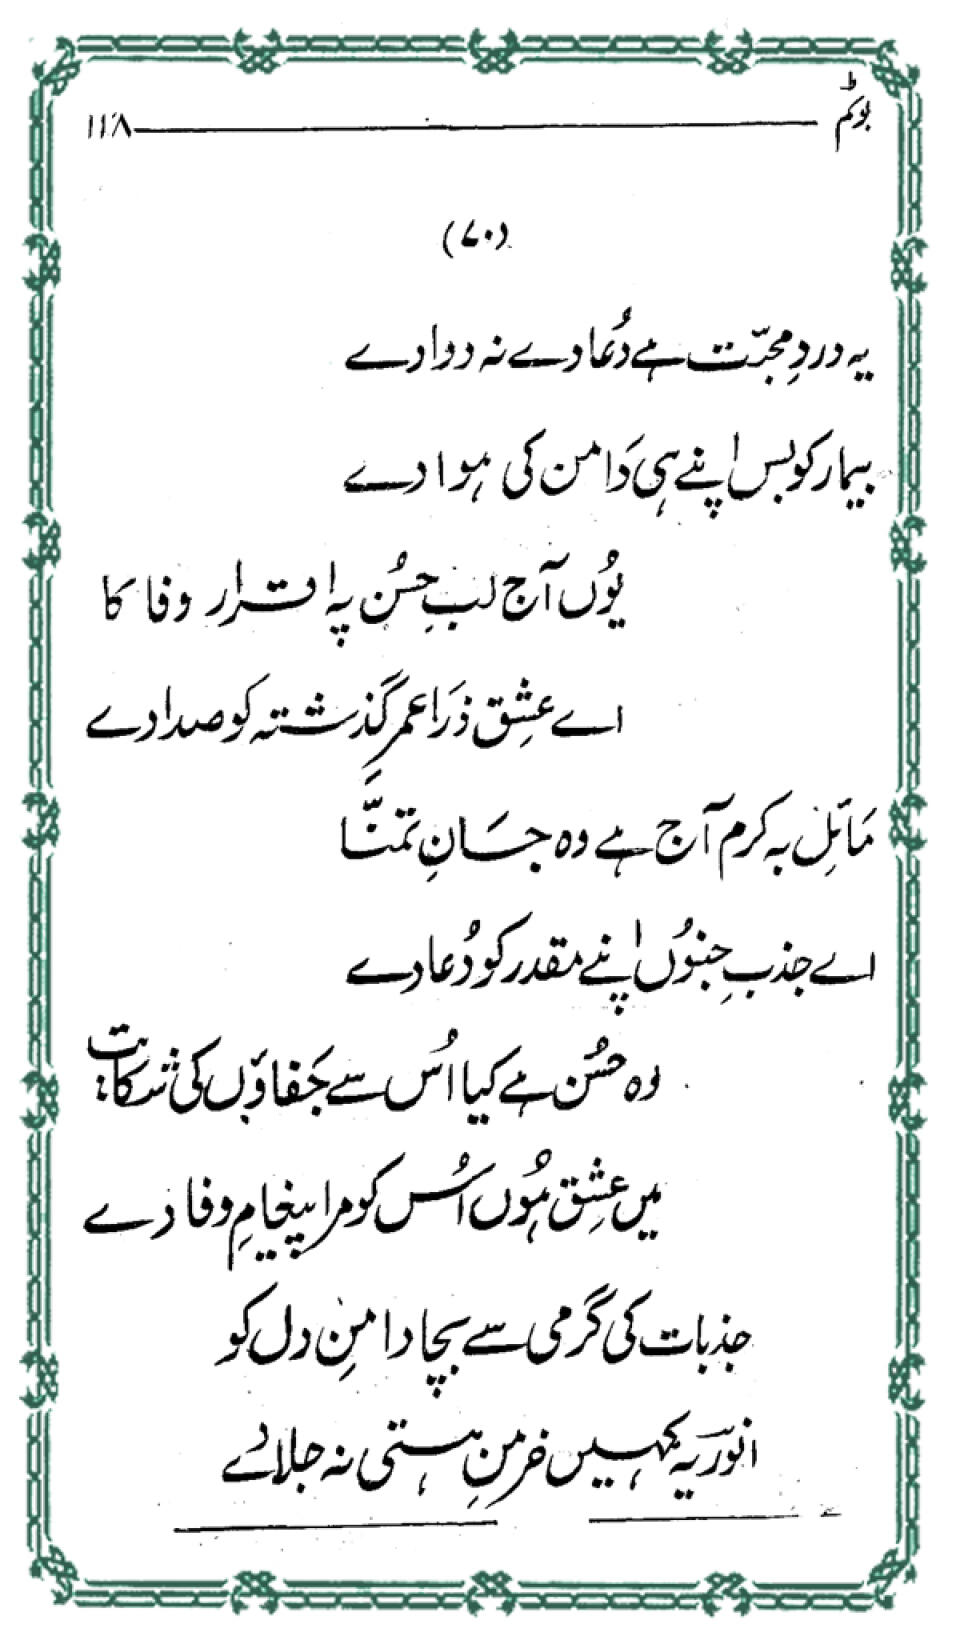 بوکٹم ۱۱۸
(۷۰)
یہ دردِ محبّت ہے دُعا دے نہ دوا دے
بیمار کو بس اپنے ہی دَامن کی ہوا دے
یُوں آج لبِ حسُن پہ اقرار وفا کا
اے عشِق ذرَا عمرِ گذشتہ کو صدا دے
مَائلِ بہ کرم آج ہے وہ جسَانِ تمنّا
اے جذبِ جنوُں اپنے مقدر کو دُعا دے
وہ حسُن ہے کیا اُس سے جَفاؤں کی شکایت
میں عشِق ہوُں اُس کو مرا پیغامِ وفا دے
جذبات کی گرمی سے بچا دامنِ دل کو
انورؔ یہ کہیں خرمنِ ہستی نہ جلا دے